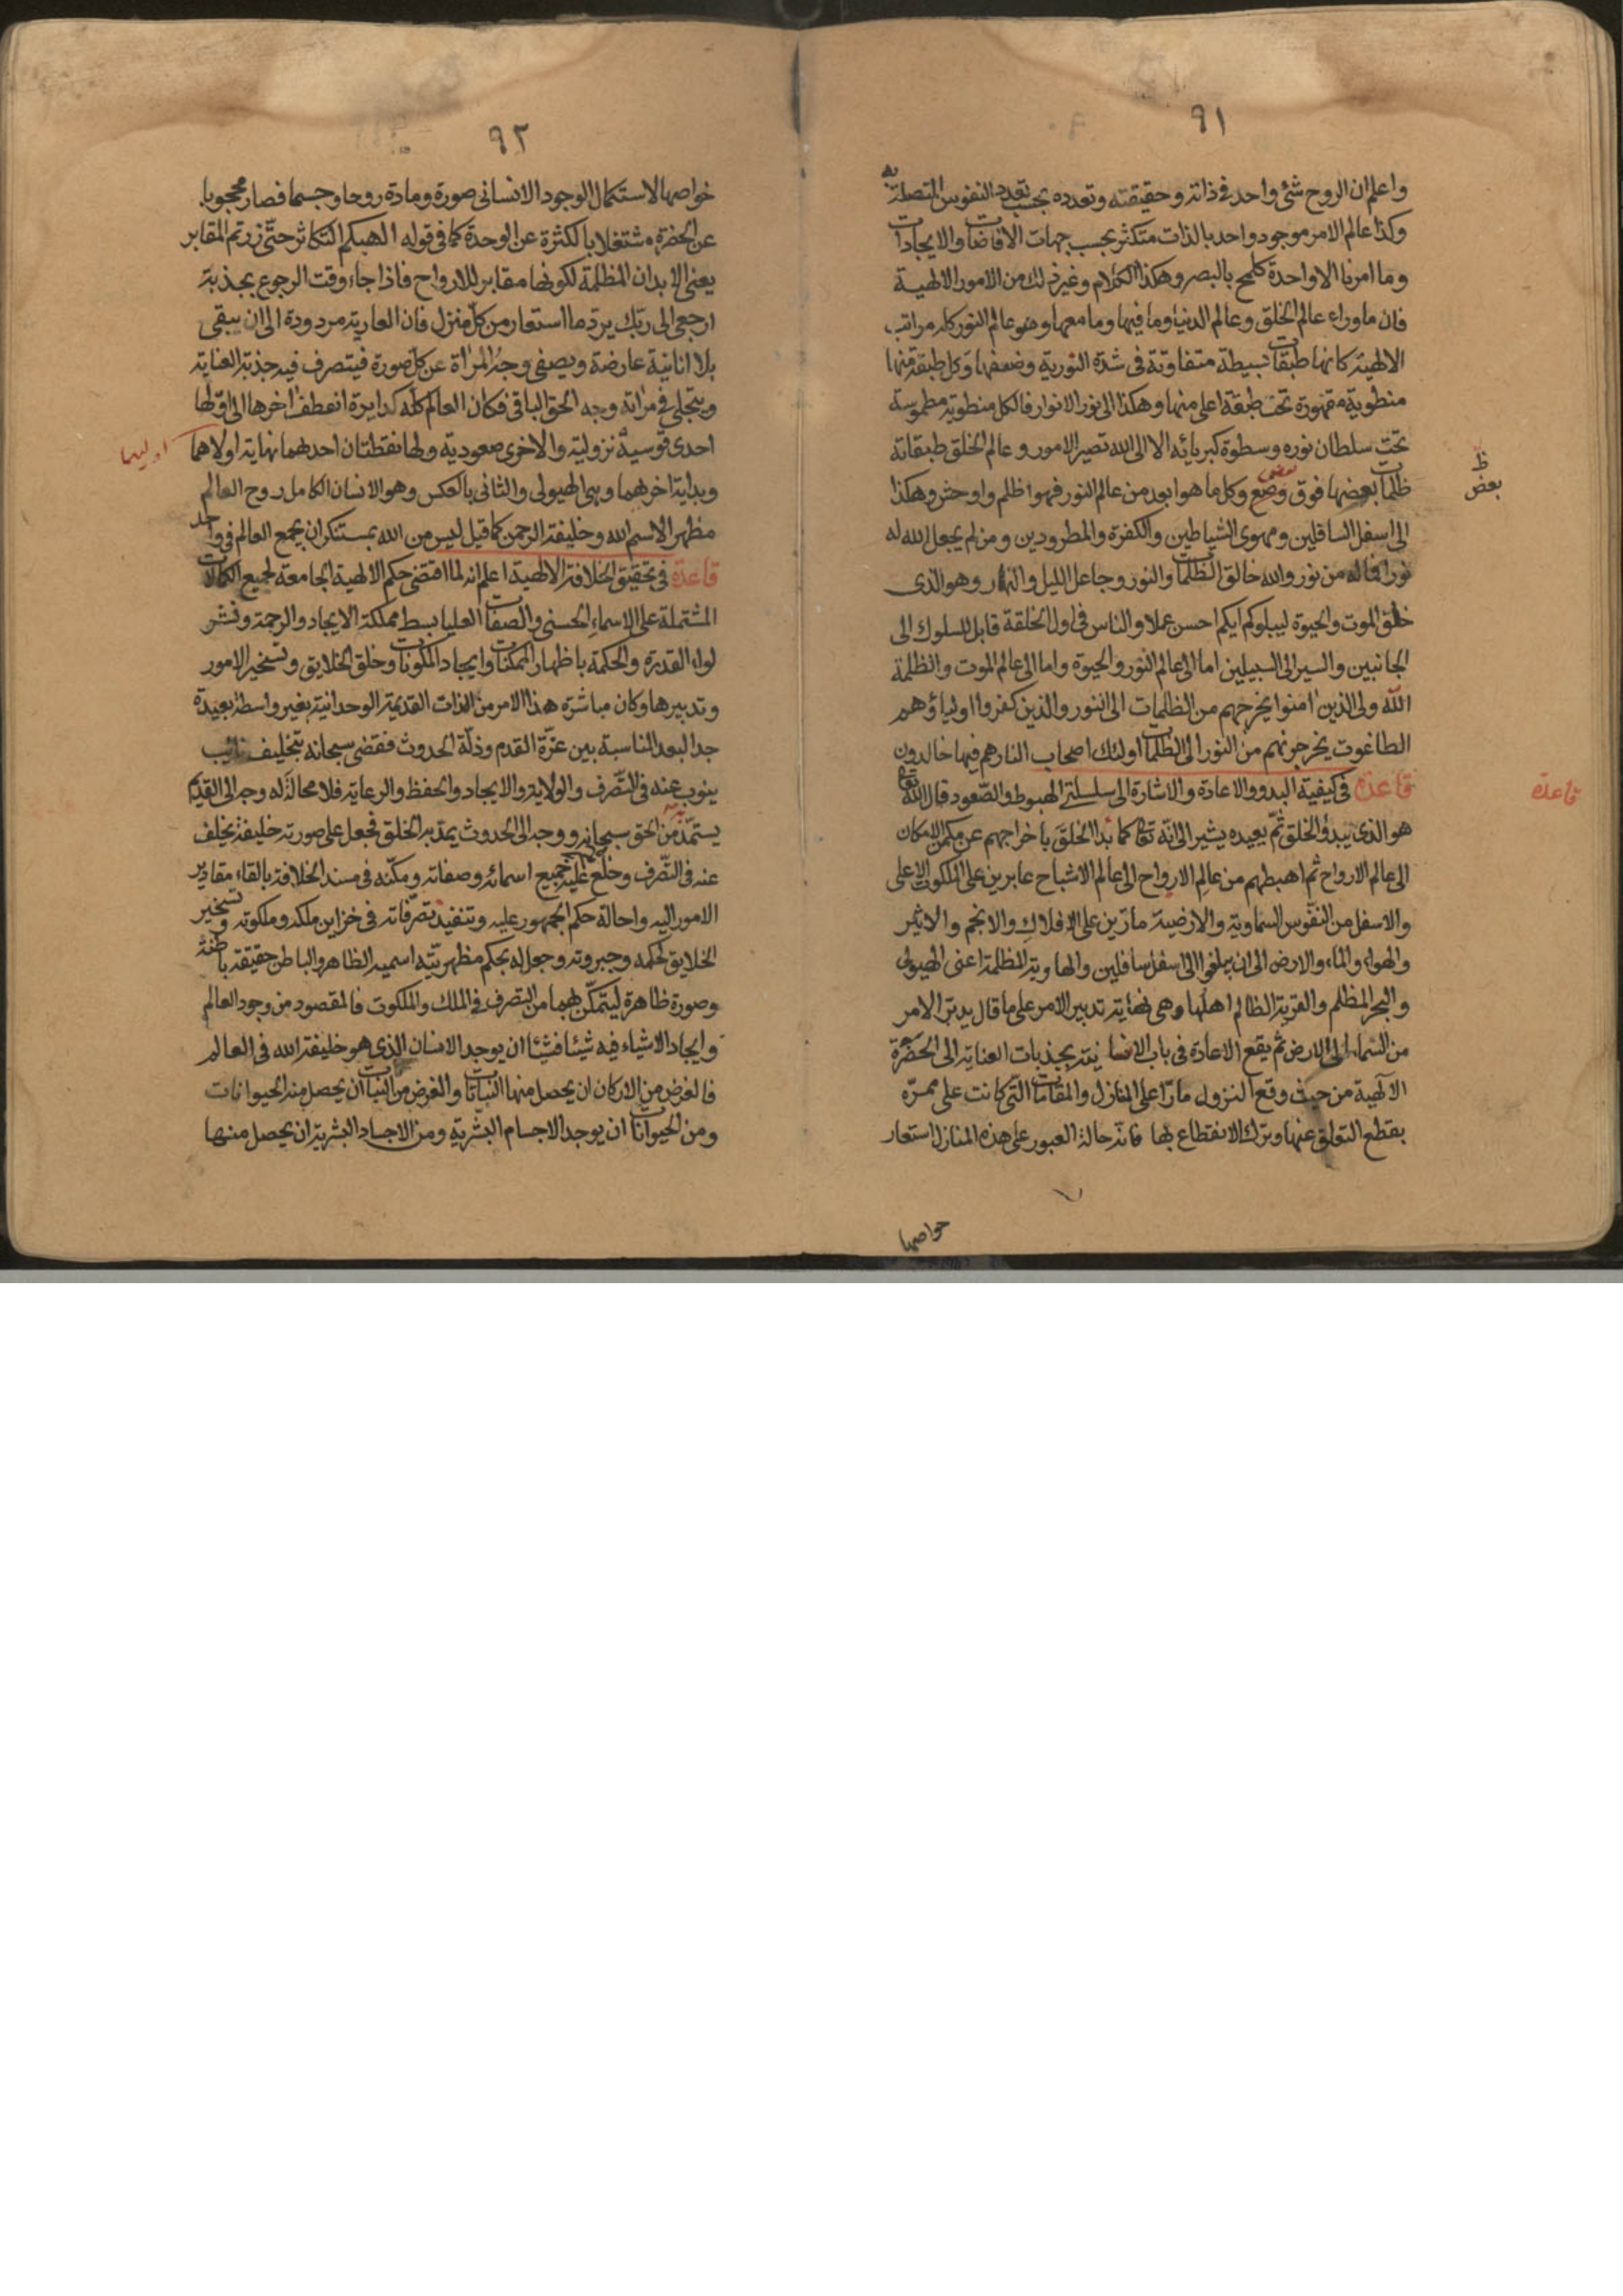 ٩١
واعلم ان الروح شئ واحد فى ذاته وحقيقته وتعدده بحسب تعدد النفوس المتصلة به
وكذا عالم الامر موجود واحد بالذات متكثر بحسب جهات الافاضات والايجادات
وما امرنا الا واحدة كلمح بالبصر وهكذا الكلام وغير ذلك من الامور الالهية
فان ماوراء عالم الخلق وعالم الدنيا وما فيها وما معها وهو عالم النور كله مراتب
الالهية كانها طبقات بسيطة متفاوتة فى شدة النورية وضعفها وكل طبقة منها
منطوية مقهورة تحت طبقة اعلى منها وهكذا الى نور الانوار فالكل منطوية مطموسة
تحت سلطان نوره وسطوة كبريائه الا الى الله تصير الامور وعالم الخلق طبقاته
ظلمات بعضها فوق وضع بعض وكل ما هو ابعد من عالم النور فهو اظلم واوحش وهكذا
ظ
بعض
الى اسفل السافلين ومهوى الشياطين والكفرة والمطرودين ومن لم يجعل الله له
نورا فما له من نور والله خالق الظلمات والنور وجاعل الليل والنهار وهو الذى
خلق الموت والحيوة ليبلوكم ايكم احسن عملا والناس فى اول الخلقة قابل للسلوك الى
الجانبين والسير الى السبيلين اما الى عالم النور والحيوة واما الى عالم الموت والظلمة
الله ولى الذين امنوا يخرجهم من الظلمات الى النور والذين كفروا اولياؤهم
الطاغوت يخرجونهم من النور الى الظلمات اولئك اصحاب النار هم فيها خالدون
قاعدة فى كيفية البدو والاعادة والاشارة الى سلسلتى الهبوط والصعود قال الله تعالى
قاعدة
هو الذى يبدؤ الخلق ثم يعيده يشير الى انه تعالى كما بدأ الخلق باخراجهم عن مكمن الامكان
الى عالم الارواح ثم اهبطهم من عالم الارواح الى عالم الاشباح عابرين على الملكوت الاعلى
والاسفل من النفوس السماوية والارضية مارّين على الافلاك والانجم والاثير
والهواء والماء والارض الى ان يبلغوا الى اسفل سافلين والهاوية المظلمة اعنى الهيولى
والبحر المظلم والقرية الظالم اهلها وهى نهاية تدبير الامر على ما قال يدبر الامر
من السماء الى الارض ثم يقع الاعادة فى باب الانسانية بجذبات العناية الى الحضرة
الالهية من حيث وقع النزول مارّا على المنازل والمقامات التى كانت على ممرّه
بقطع التعلق عنها وترك الانقطاع بها فانه حالة العبور على هذه المنازل استعار
خواصها
٩٢
خواصها لاستكمال الوجود الانسانى صورة ومادة روحا وجسما فصار محجوبا
عن الحضرة مشتغلا بالكثرة عن الوحدة كما فى قوله الهيكم التكاثر حتّى زرتم المقابر
يعنى الابدان المظلمة لكونها مقابر للارواح فاذا جاء وقت الرجوع بجذبة
ارجعى الى ربك يردّ ما استعار من كلّ منزل فان العارية مردودة الى ان يبقى
بلا انانية عارضة ويصفى وجه المرأة عن كلّ صورة فيتصرف فيه جذبة العناية
ويتجلى فى مرآته وجه الحق الباقى فكان العالم كله كدايرة انعطف اخرها الى اولها
احدى قوسيه نزولية والاخرى صعودية ولها نقطتان احدهما نهاية اولاهما
اوليهما
وبداية اخرهما وهى الهيولى والثانى بالعكس وهو الانسان الكامل روح العالم
مظهر الاسم الله وخليفة الرحمن كما قيل ليس من الله بمستنكر ان يجمع العالم فى واحد
قاعدة فى تحقيق الخلافة الالهية اعلم انه لما اقتضى حكم الالهية الجامعة لجميع الكمالات
المشتملة على الاسماء الحسنى والصفات العليا بسط مملكة الايجاد والرحمة ونشر
لواء القدرة والحكمة باظهار الممكنات وايجاد المكونات وخلق الخلايق وتسخير الامور
وتدبيرها وكان مباشرة هذا الامر من الذات القديمة الوحدانية بغير واسطة بعيدة
جدا لبعد المناسبة بين عزّة القدم وذلّة الحدوث فقضى سبحانه بتخليف نائب
ينوب عنه فى التصرف والولاية والايجاد والحفظ والرعاية فلا محالة له وجه الى القدم
يستمدّ به من الحق سبحانه ووجه الى الحدوث يمدّ به الخلق فجعل على صورته خليفة يخلف
عنه فى التصرف وخلع عليه جميع اسمائه وصفاته ومكّنه فى مسند الخلافة بالقاء مقادير
الامور اليه واحالة حكم الجمهور عليه وتنفيذ تصرّفاته فى خزاين ملكه وملكوته وتسخير
الخلايق لحكمه وجبروته وجعل له بحكم مظهريّته اسميه الظاهر والباطن حقيقة باطنة
وصورة ظاهرة ليتمكّن بهما من التصرف فى الملك والملكوت فالمقصود من وجود العالم
وايجاد الاشياء فيه شيئا فشيئا ان يوجد الانسان الذى هو خليفة الله فى العالم
فالغرض من الاركان ان يحصل منها النباتات والغرض من النبات ان يحصل منه الحيوانات
ومن الحيوانات ان يوجد الاجسام البشرية ومن الاجساد البشرية ان يحصل منها